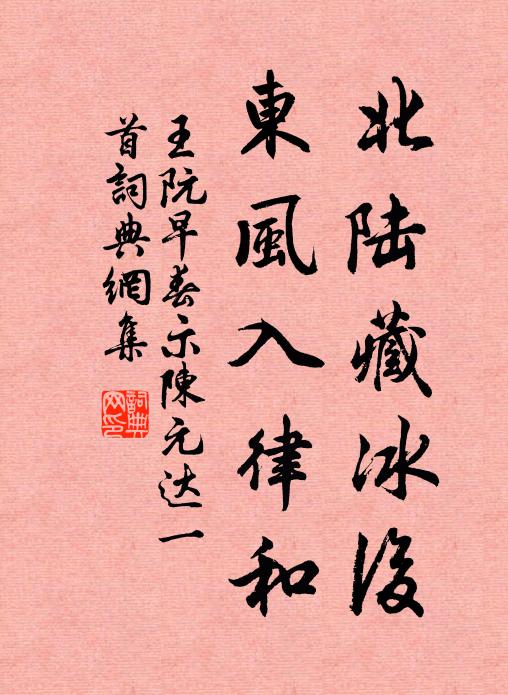 北陆藏冰後
東風入律和
王阮早春示陳元达一
首詞典網集
詞典网印